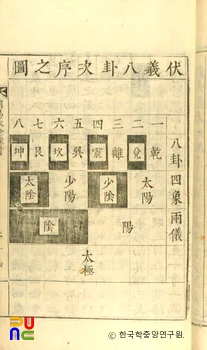 伏羲八卦次序之圖
八卦 四象 兩儀
一 二 三 四 五 六 七 八
乾 兌 離 震 巽 坎 艮 坤
太陽 少陰 少陽 太陰
陽 陰
太極
© 한국학중앙연구원